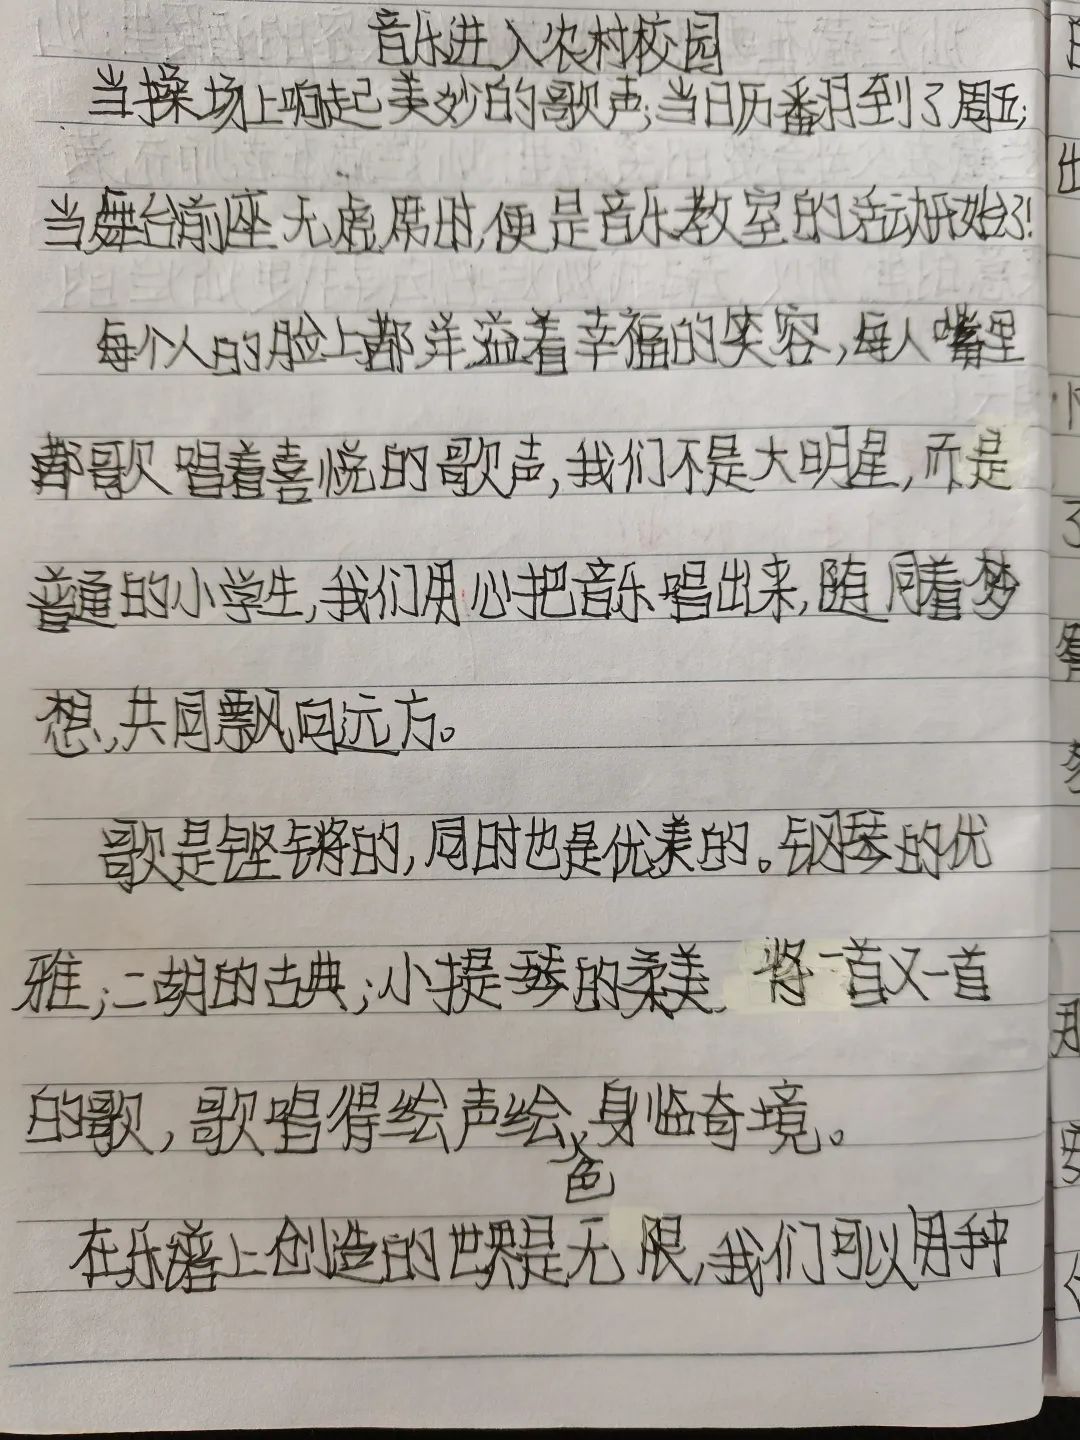 音乐进入农村校园
当操场上响起美妙的歌声;当日历翻到了周五;
当舞台前座无虚席时,便是音乐教室的活动开始了!
每个人的脸上都洋溢着幸福的笑容,每人嘴里
都歌唱着喜悦的歌声,我们不是大明星,而是
普通的小学生,我们用心把音乐唱出来,随同着梦
想,共同飘向远方。
歌是铿锵的,同时也是优美的。钢琴的优
雅;二胡的古典;小提琴的柔美 将一首又一首
的歌,歌唱得绘声绘色,身临奇境。
在乐谱上创造的世界是无限,我们可以用种